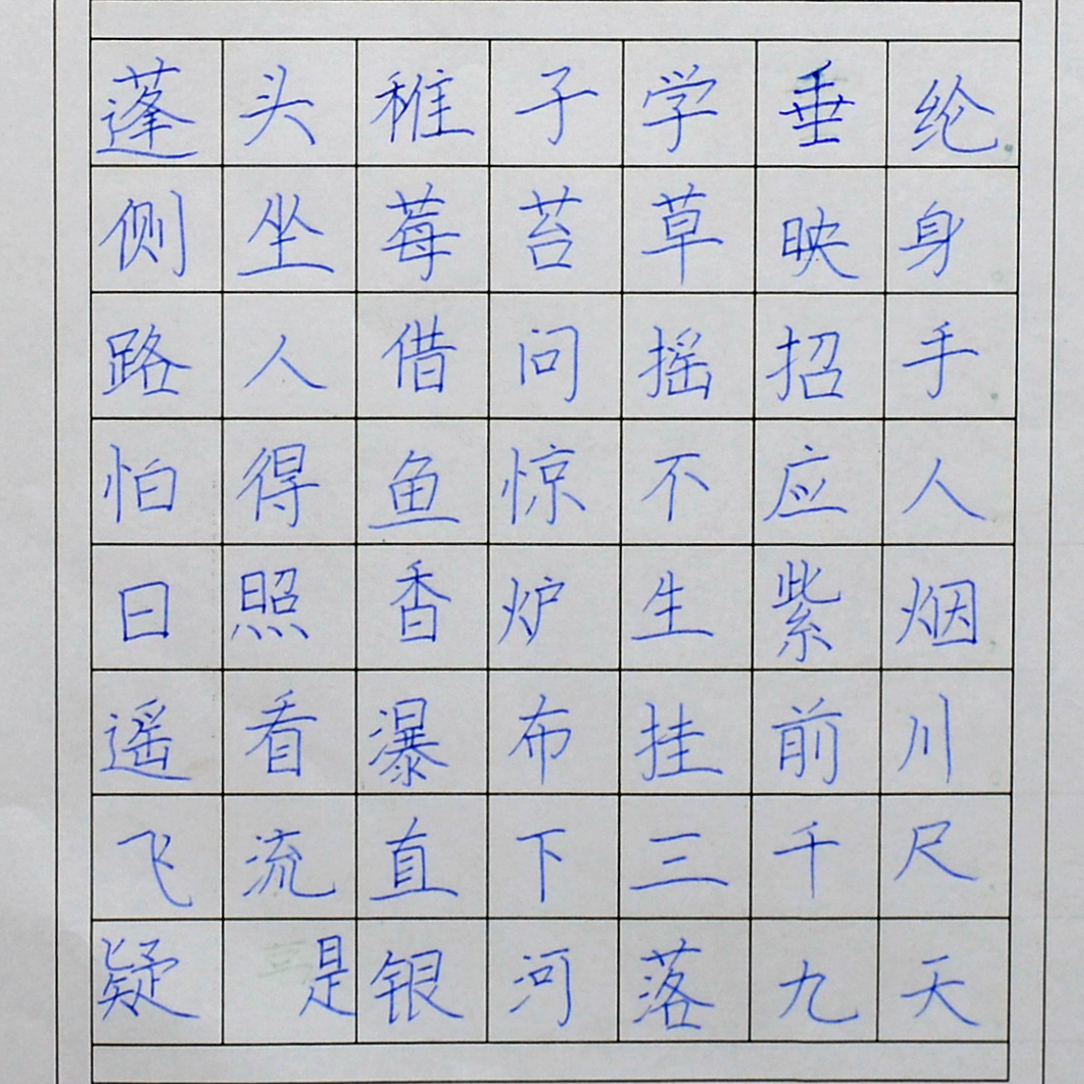 蓬头稚子学垂纶
侧坐莓苔草映身
路人借问摇招手
怕得鱼惊不应人
日照香炉生紫烟
遥看瀑布挂前川
飞流直下三千尺
疑是银河落九天